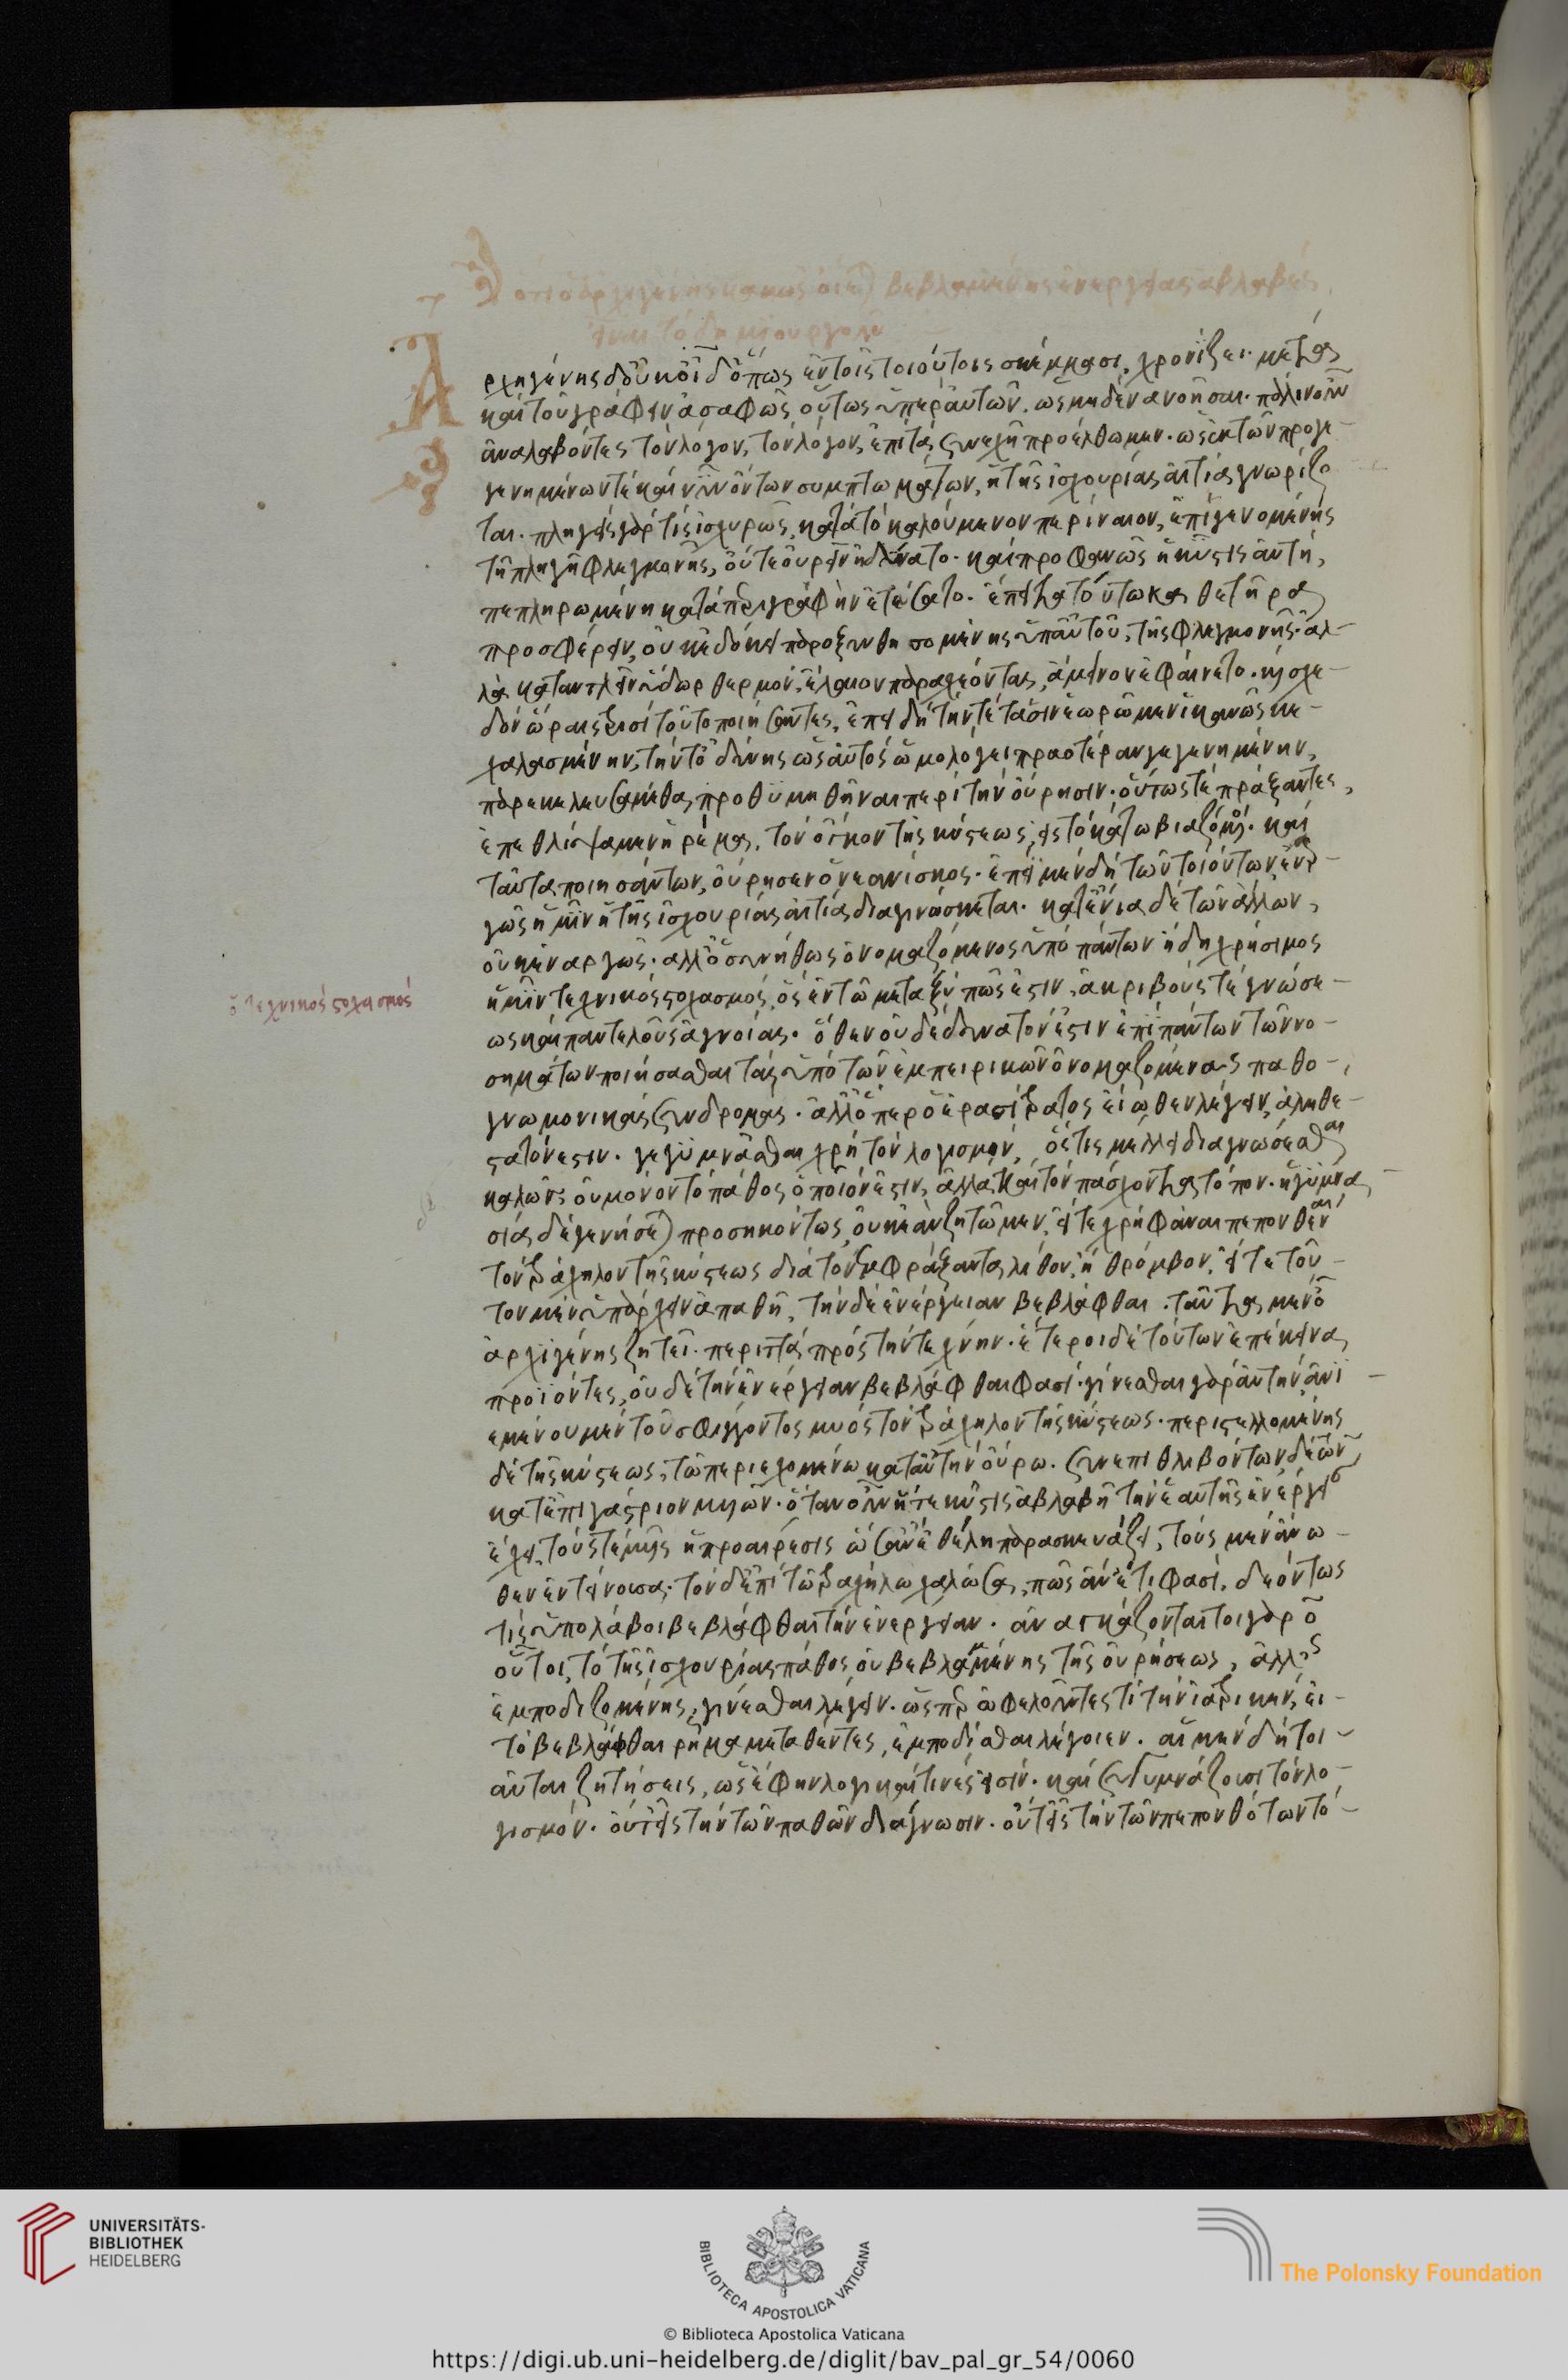 ὅτι ὁ ἀρχιγένης κακῶς οἴεται βεβλαμμένης ἐνεργείας ἀβλαβὲς
εἶναι τὸ δημιουργοῦν
Αρχηγένης δ' οὐκ οἶδ' ὅπως ἐν τοῖς τοιούτοις σκέμμασι, χρονίζει· μετὰ
καὶ τοῦ γράφειν ἀσαφῶς οὕτως ὑπὲρ αὐτῶν, ὡς μηδένα νοῆσαι. πάλιν οὖν
ἀναλαβόντες τὸν λόγον, τὸν λόγον, ἐπὶ τὰ συνεχῆ προέλθωμεν. ὡς ἐκ τῶν προγε-
γενημένων τὲ καὶ νῦν ὄντων συμπτωμάτων, ἡ τῆς ἰσχουρίας αἰτία γνωρίζε
ται. πληγεὶς γάρ τις ἰσχυρῶς, κατὰ τὸ καλούμενον περίναιον, ἐπιγενομένης
τῇ πληγῇ φλεγμονῆς, οὔτε οὐρεῖν ἠδύνατο. καὶ προφανῶς ἡ κύστις αὐτῇ,
πεπληρωμένη κατὰ περιγραφὴν ἐτέτατο. ἔπειτα τούτω καθετῆρα
προσφέρειν, οὐκ ἐδόκει παροξυνθησομένης ὑπ' αὐτοῦ, τῆς φλεγμονῆς. ἀλ-
λὰ καταντλεῖν ὕδωρ θερμόν, ἔλαιον παραχέοντας, ἄμεινον ἐφαίνετο. καὶ σχε-
δὸν ὥραις τρισὶ τοῦτο ποιήσαντες, ἐπειδὴ τήν τε τάσιν ἑωρῶμεν ἱκανῶς κε-
χαλασμένην, τήν τ' ὀδύνης ὡς αὐτὸς ὡμολόγει πραοτέραν γεγενημένην,
παρεκελευσάμεθα, προθυμηθῆναι περὶ τὴν οὔρησιν. οὕτως τε πράξαντες,
ἐπεθλίψαμεν ἠρέμα, τὸν ὄγκον τῆς κύστεως, εἰς τὸ κάτω βιαζόμενοι. καὶ
ταῦτα ποιησάντων, οὔρησεν ὁ νεανίσκος. ἐπὶ μὲν δὴ τῶν τοιούτων, ἐναρ-
γῶς ἡμῖν ἡ τῆς ἰσχουρίας αἰτία διαγινώσκεται. κατ' ἔνια δὲ τῶν ἄλλων,
οὐκ ἐναργῶς. ἀλλ' ὁ συνήθως ὀνομαζόμενος ὑπὸ πάντων ἤδη χρήσιμος
ἡμῖν τεχνικὸς στοχασμός, ὃς ἐν τῷ μεταξύ πώς ἐστιν, ἀκριβοῦς τε γνώσε-
ὁ τεχνικὸς στοχασμός
ως καὶ παντελοῦς ἀγνοίας. ὅθεν οὐδὲ δυνατόν ἐστιν ἐπὶ πάντων τῶν νο-
σημάτων ποιήσασθαι τὰς ὑπὸ τῶν ἐμπειρικῶν ὀνομαζομένας παθο-
γνωμονικὰς συνδρομάς. ἀλλ' ὅπερ ὁ ἐρασίστρατος εἴωθεν λέγειν, ἀληθέ-
στατόν ἐστιν. γεγυμνάσθαι χρὴ τὸν λογισμόν, ὅστις μέλλει διαγνώσεσθαι
καλῶς οὐ μόνον τὸ πάθος ὁποῖόν ἐστιν, ἀλλὰ καὶ τὸν πάσχοντα τόπον. ἡ γυμνα
σία δὲ γενήσεται προσηκόντως, οὐκ ἐὰν ζητῶμεν, εἴτε χρὴ φάναι πεπονθέναι
τὸν τράχηλον τῆς κύστεως διὰ τὸν ἐμφράξαντα λίθον, ἢ θρόμβον, εἴτε τοῦ-
τον μὲν ὑπάρχειν ἀπαθῆ, τὴν δὲ ἐνέργειαν βεβλάφθαι. ταῦτα μὲν ὁ
ἀρχιγένης ζητεῖ. περιττὰ πρὸς τὴν τέχνην. ἕτεροι δὲ τούτων ἐπέκεινα,
προϊόντες, οὐδὲ τὴν ἐνέργειαν βεβλάφθαι φασί. γίνεσθαι γὰρ αὐτὴν, ἀνι-
εμένου μὲν τοῦ σφίγγοντος μυὸς τὸν τράχηλον τῆς κύστεως. περιστελλομένης
δὲ τῆς κύστεως, τῷ περιεχομένω κατ' αὐτὴν οὔρω. συνεπιθλιβόντων δὲ τῶν
κατ' ἐπιγάστριον μυῶν. ὅταν οὖν ἥ τε κύστις ἀβλαβῆ τὴν ἑαυτῆς ἐνέργειαν
ἔχει, τούς τε μῦς ἡ προαίρεσις ὡς ἂν ἐθέλη παρασκευάζει, τοὺς μὲν ἄνω-
θεν ἐντείνουσα, τὸν δ' ἐπὶ τῷ τραχήλω χαλῶσα, πῶς ἂν ἔτι φασί, δεόντως
τις ὑπολάβοι βεβλάφθαι τὴν ἐνέργειαν. ἀναγκάζονταί τοι γὰρ
οὗτοι, τὸ τῆς ἰσχουρίας πάθος οὐ βεβλαμμένης τῆς οὐρήσεως, ἀλλ'
ἐμποδιζομένης, γίνεσθαι λέγειν. ὥσπερ ὠφελοῦντες τὶ τὴν ἰατρικήν, εἰ
τὸ βεβλάφθαι ῥῆμα μεταθέντες, ἐμποδίσθαι λέγοιεν. αἱ μὲν δὴ τοι
αῦται ζητήσεις, ὡς ἔφην λογικαί τινές εἰσίν. καὶ συγγυμνάζουσι τὸν λο-
γισμόν. οὔτ' εἰς τὴν τῶν παθῶν διάγνωσιν. οὔτ' εἰς τὴν τῶν πεπονθότων τό-
UNIVERSITÄTS-
BIBLIOTHEK
HEIDELBERG
BIBLIOTECA APOSTOLICA VATICANA
The Polonsky Foundation
© Biblioteca Apostolica Vaticana
https://digi.ub.uni-heidelberg.de/diglit/bav_pal_gr_54/0060